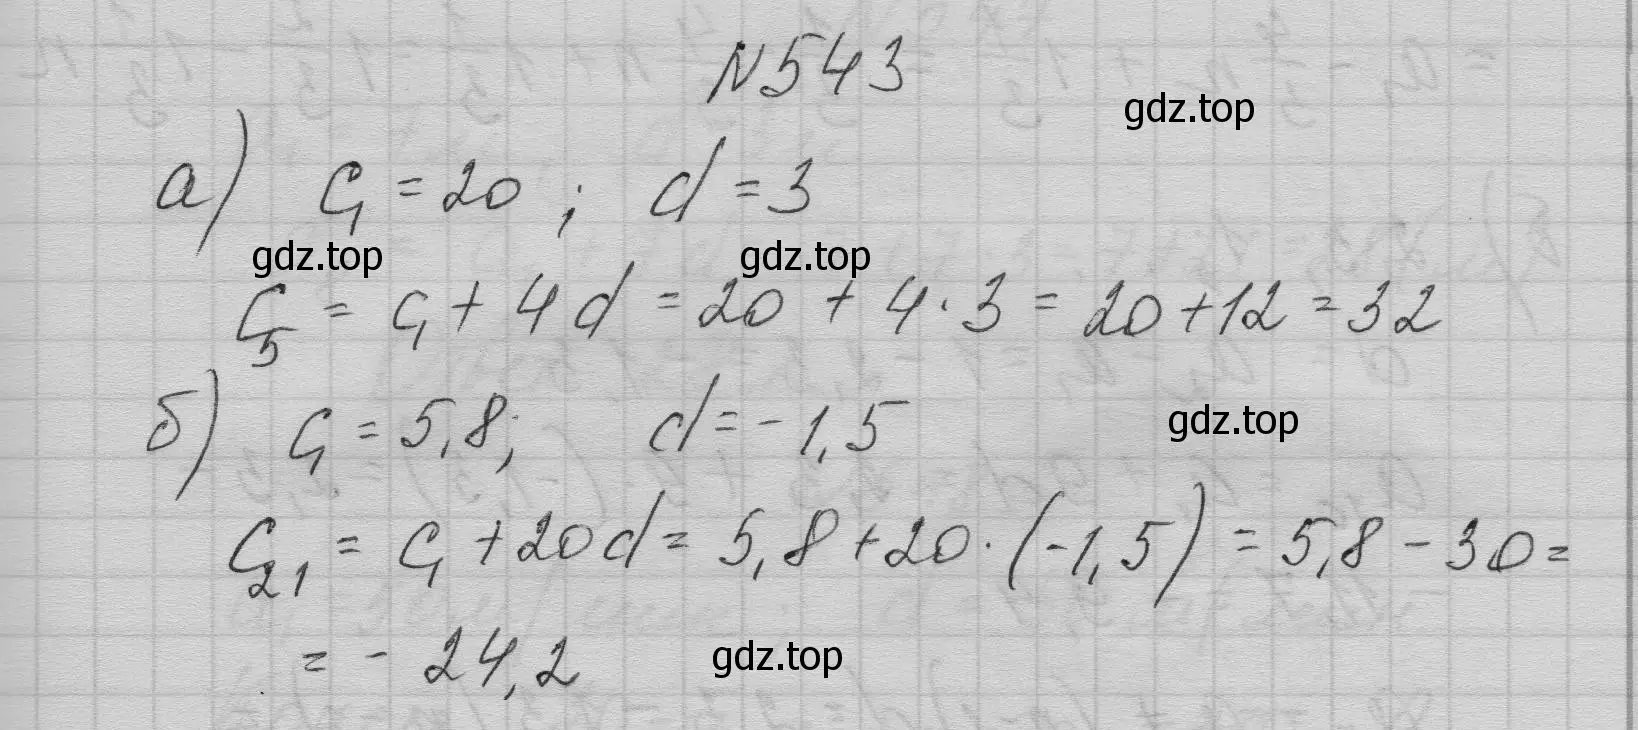 N543
gdz.top
а) C₁ = 20 ; d = 3
gdz.top gdz.top
C₅ = C₁ + 4d = 20 + 4·3 = 20 + 12 = 32
б) C₁ = 5,8; d = -1,5
gdz.top
C₂₁ = C₁ + 20d = 5,8 + 20·(-1,5) = 5,8 - 30 =
= - 24,2
gdz.top